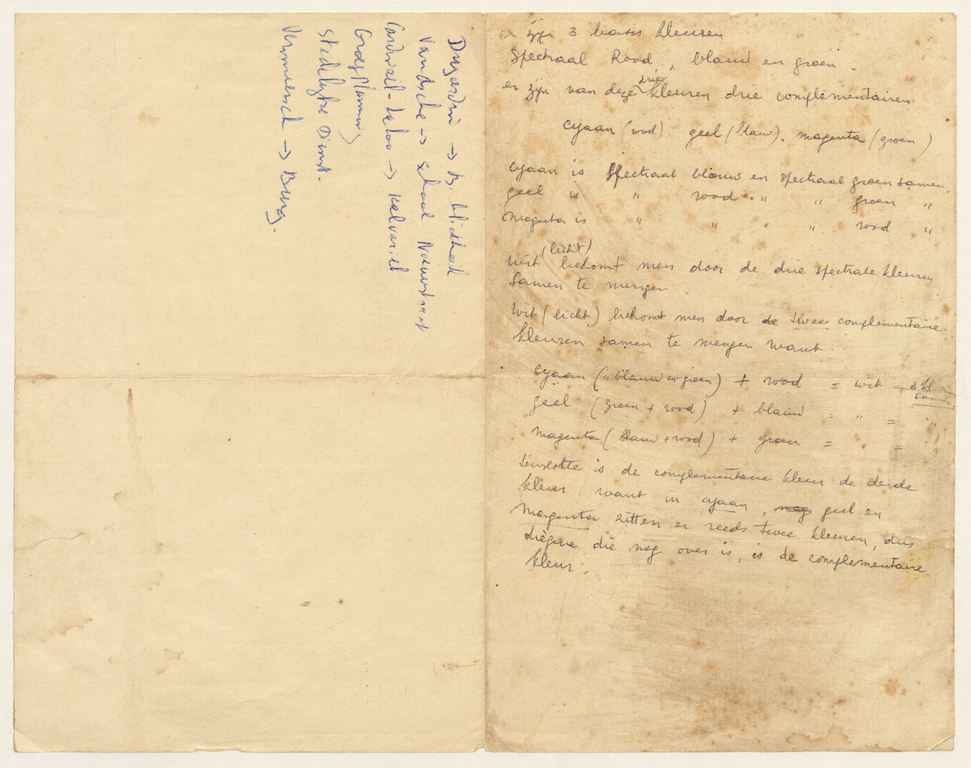 Dujardin -> b. bliothek
Vandsche -> school Nieuwstraat
Cardinael-
-> Kalvariel
Groepplanning
stedelijke Dienst.
Vermeersch -> Burg.
er zijn 3 basis kleuren
Spectraal Rood, blauw en groen.
er zijn van deze drie kleuren drie complementairen
cyaan (rood) geel (blauw). magenta (groen)
cyaan is spectraal blauw en spectraal groen samen.
geel is " rood " " groen "
magenta is " " " " rood "
wit (licht) bekomt men door de drie spectrale kleuren
samen te mengen
wit (licht) bekomt men door de twee complementaire
kleuren samen te mengen want.
cyaan (is blauw en groen) + rood = wit = 3 kleuren samen
geel (groen + rood) + blauw = " = "
magenta (blauw + rood) + groen = " = "
tenslotte is de complementaire kleur de derde
kleur want in cyaan, mag geel en
magenta zitten er reeds twee kleuren, dus
diegene die nog over is, is de complementaire
kleur.